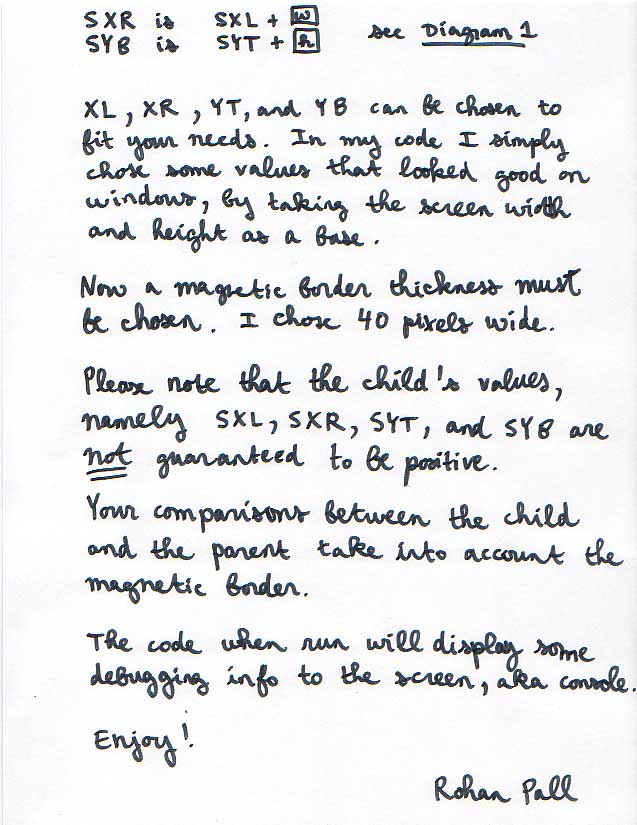 SXR is SXL + w
SYB is SYT + h see Diagram 1
XL, XR, YT, and YB can be chosen to
fit your needs. In my code I simply
chose some values that looked good on
windows, by taking the screen width
and height as a base.
Now a magnetic border thickness must
be chosen. I chose 40 pixels wide.
Please note that the child's values,
namely SXL, SXR, SYT, and SYB are
not guaranteed to be positive.
Your comparisons between the child
and the parent take into account the
magnetic border.
The code when run will display some
debugging info to the screen, aka console.
Enjoy!
Rohan Pall